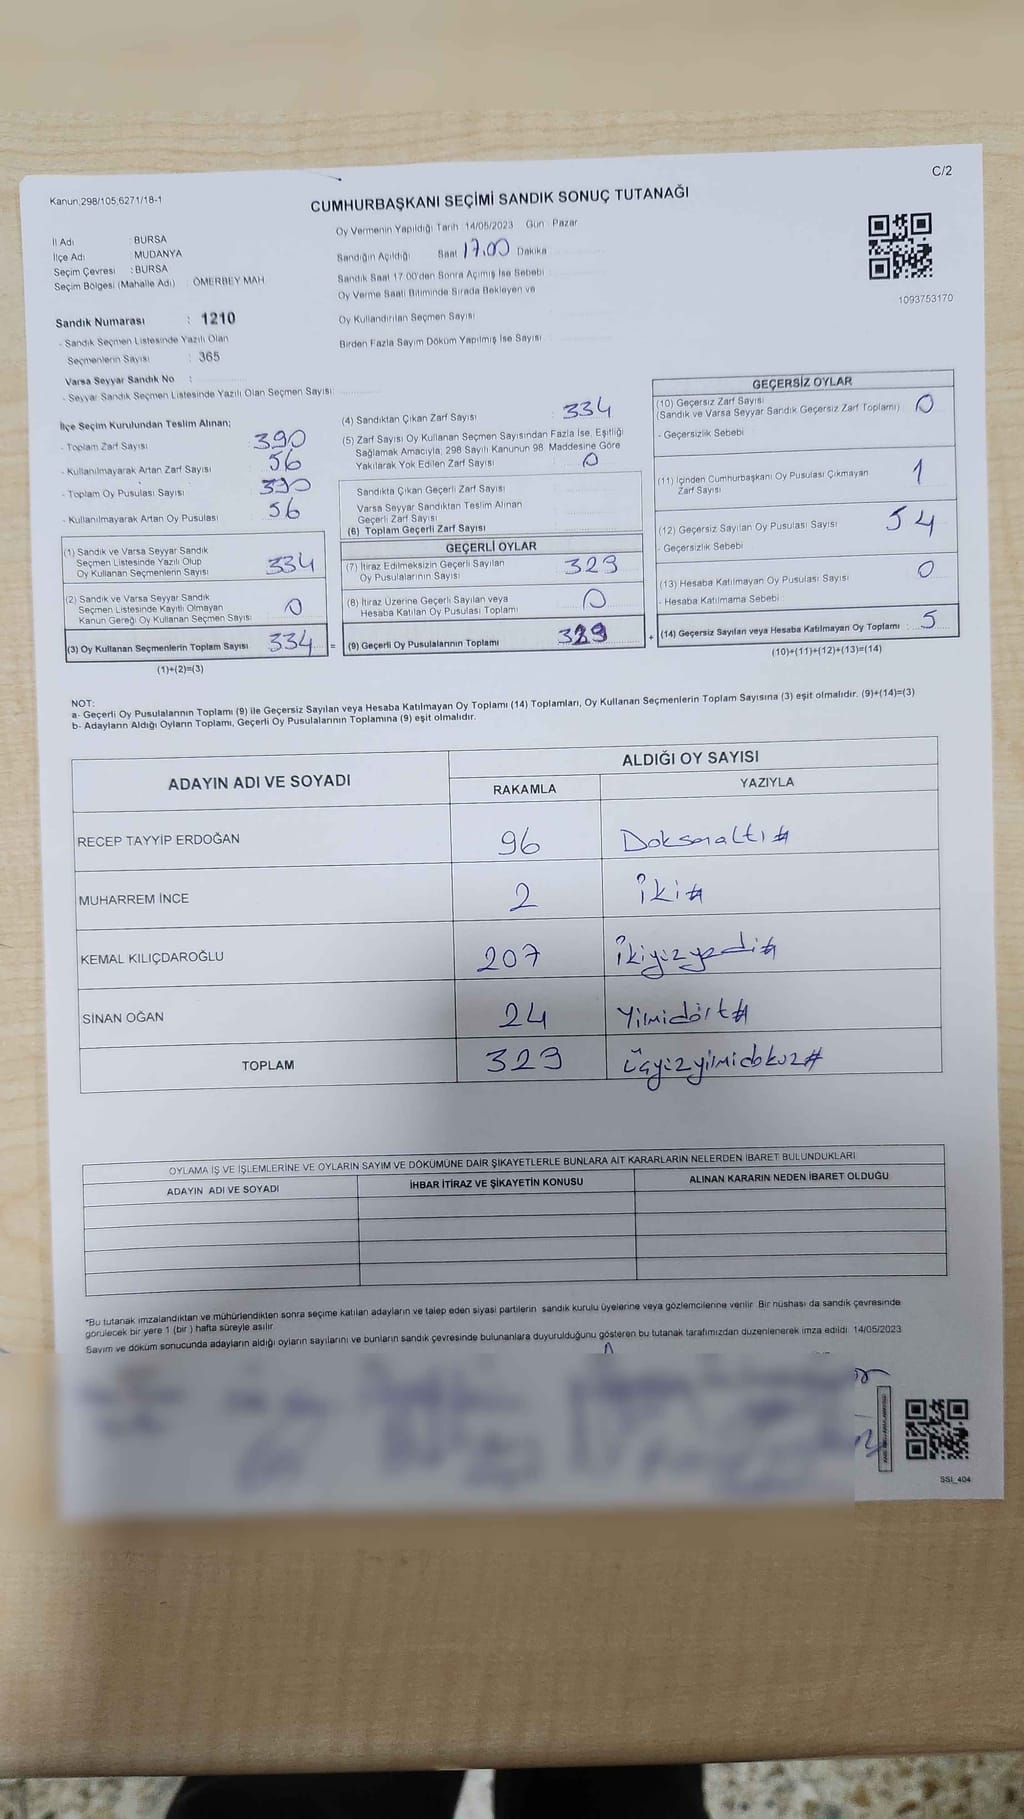 C/2
Kanun;298/105;6271/18-1
CUMHURBAŞKANI SEÇİMİ SANDIK SONUÇ TUTANAĞI
Oy Vermenin Yapıldığı Tarih 14/05/2023 Gün : Pazar
İl Adı : BURSA
İlçe Adı : MUDANYA
Seçim Çevresi : BURSA
Seçim Bölgesi (Mahalle Adı) : ÖMERBEY MAH
Sandığın Açıldığı Saat 17.00 Dakika
Sandık Saat 17:00'den Sonra Açılmış İse Sebebi
Oy Verme Saati Bitiminde Sırada Bekleyen ve
Oy Kullandırılan Seçmen Sayısı
Birden Fazla Sayım Döküm Yapılmış İse Sayısı
1093753170
Sandık Numarası : 1210
- Sandık Seçmen Listesinde Yazılı Olan
Seçmenlerin Sayısı : 365
Varsa Seyyar Sandık No :
- Seyyar Sandık Seçmen Listesinde Yazılı Olan Seçmen Sayısı:
İlçe Seçim Kurulundan Teslim Alınan;
- Toplam Zarf Sayısı 390
- Kullanılmayarak Artan Zarf Sayısı 56
- Toplam Oy Pusulası Sayısı 390
- Kullanılmayarak Artan Oy Pusulası 56
(1) Sandık ve Varsa Seyyar Sandık
Seçmen Listesinde Yazılı Olup
Oy Kullanan Seçmenlerin Sayısı 334
(2) Sandık ve Varsa Seyyar Sandık
Seçmen Listesinde Kayıtlı Olmayan
Kanun Gereği Oy Kullanan Seçmen Sayısı 0
(3) Oy Kullanan Seçmenlerin Toplam Sayısı 334 =
(1)+(2)=(3)
(4) Sandıktan Çıkan Zarf Sayısı : 334
(5) Zarf Sayısı Oy Kullanan Seçmen Sayısından Fazla İse, Eşitliği
Sağlamak Amacıyla; 298 Sayılı Kanunun 98. Maddesine Göre
Yakılarak Yok Edilen Zarf Sayısı 0
Sandıkta Çıkan Geçerli Zarf Sayısı
Varsa Seyyar Sandıktan Teslim Alınan
Geçerli Zarf Sayısı
(6) Toplam Geçerli Zarf Sayısı
GEÇERLİ OYLAR
(7) İtiraz Edilmeksizin Geçerli Sayılan
Oy Pusulalarının Sayısı 329
(8) İtiraz Üzerine Geçerli Sayılan veya
Hesaba Katılan Oy Pusulası Toplamı 0
(9) Geçerli Oy Pusulalarının Toplamı 329 +
GEÇERSİZ OYLAR
(10) Geçersiz Zarf Sayısı
(Sandık ve Varsa Seyyar Sandık Geçersiz Zarf Toplamı) 0
- Geçersizlik Sebebi
(11) İçinden Cumhurbaşkanı Oy Pusulası Çıkmayan
Zarf Sayısı 1
(12) Geçersiz Sayılan Oy Pusulası Sayısı
- Geçersizlik Sebebi
(13) Hesaba Katılmayan Oy Pusulası Sayısı 0
- Hesaba Katılmama Sebebi
(14) Geçersiz Sayılan veya Hesaba Katılmayan Oy Toplamı : 5
(10)+(11)+(12)+(13)=(14)
NOT:
a- Geçerli Oy Pusulalarının Toplamı (9) ile Geçersiz Sayılan veya Hesaba Katılmayan Oy Toplamı (14) Toplamları, Oy Kullanan Seçmenlerin Toplam Sayısına (3) eşit olmalıdır. (9)+(14)=(3)
b- Adayların Aldığı Oyların Toplamı, Geçerli Oy Pusulalarının Toplamına (9) eşit olmalıdır.
ADAYIN ADI VE SOYADI
ALDIĞI OY SAYISI
RAKAMLA YAZIYLA
RECEP TAYYİP ERDOĞAN 96 Doksanaltı #
MUHARREM İNCE 2 İki #
KEMAL KILIÇDAROĞLU 207 İkiyüzyedi #
SİNAN OĞAN 24 Yirmidört #
TOPLAM 329 Üçyüzyirmidokuz #
OYLAMA İŞ VE İŞLEMLERİNE VE OYLARIN SAYIM VE DÖKÜMÜNE DAİR ŞİKAYETLERLE BUNLARA AİT KARARLARIN NELERDEN İBARET BULUNDUKLARI
ADAYIN ADI VE SOYADI İHBAR İTİRAZ VE ŞİKAYETİN KONUSU ALINAN KARARIN NEDEN İBARET OLDUĞU
*Bu tutanak imzalandıktan ve mühürlendikten sonra seçime katılan adayların ve talep eden siyasi partilerin sandık kurulu üyelerine veya gözlemcilerine verilir. Bir nüshası da sandık çevresinde
görülecek bir yere 1 (bir ) hafta süreyle asılır.
Sayım ve döküm sonucunda adayların aldığı oyların sayılarını ve bunların sandık çevresinde bulunanlara duyurulduğunu gösteren bu tutanak tarafımızdan düzenlenerek imza edildi. 14/05/2023
SSI_404